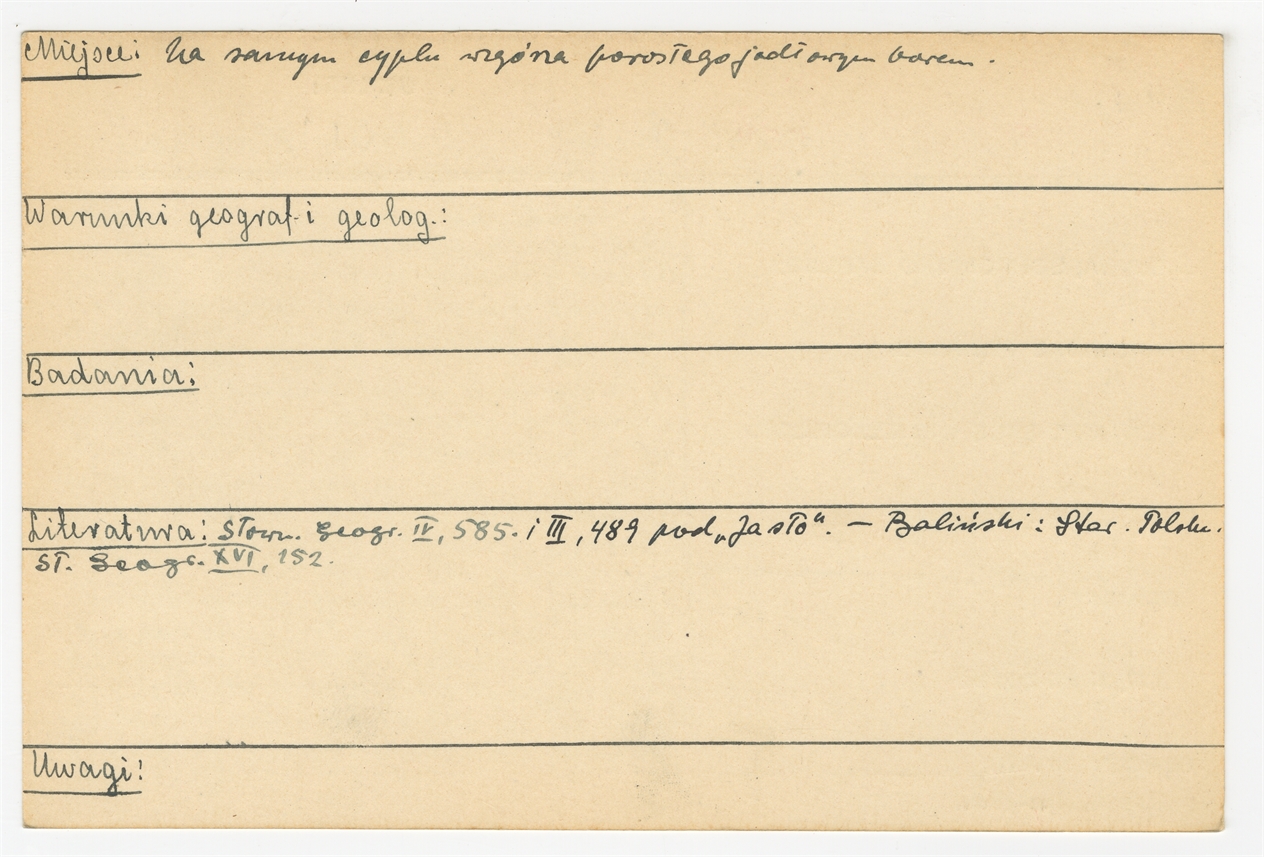 Miejsce: Na samym cyplu wzgórza porosłego jodłowym borem.
Warunki geograf. i geolog.:
Badania:
Literatura: Słown. Geogr. IV, 585. i III, 489 pod „Jasło“. — Baliński: Star. Polska.
Sł. Geogr. XVI, 152.
Uwagi: